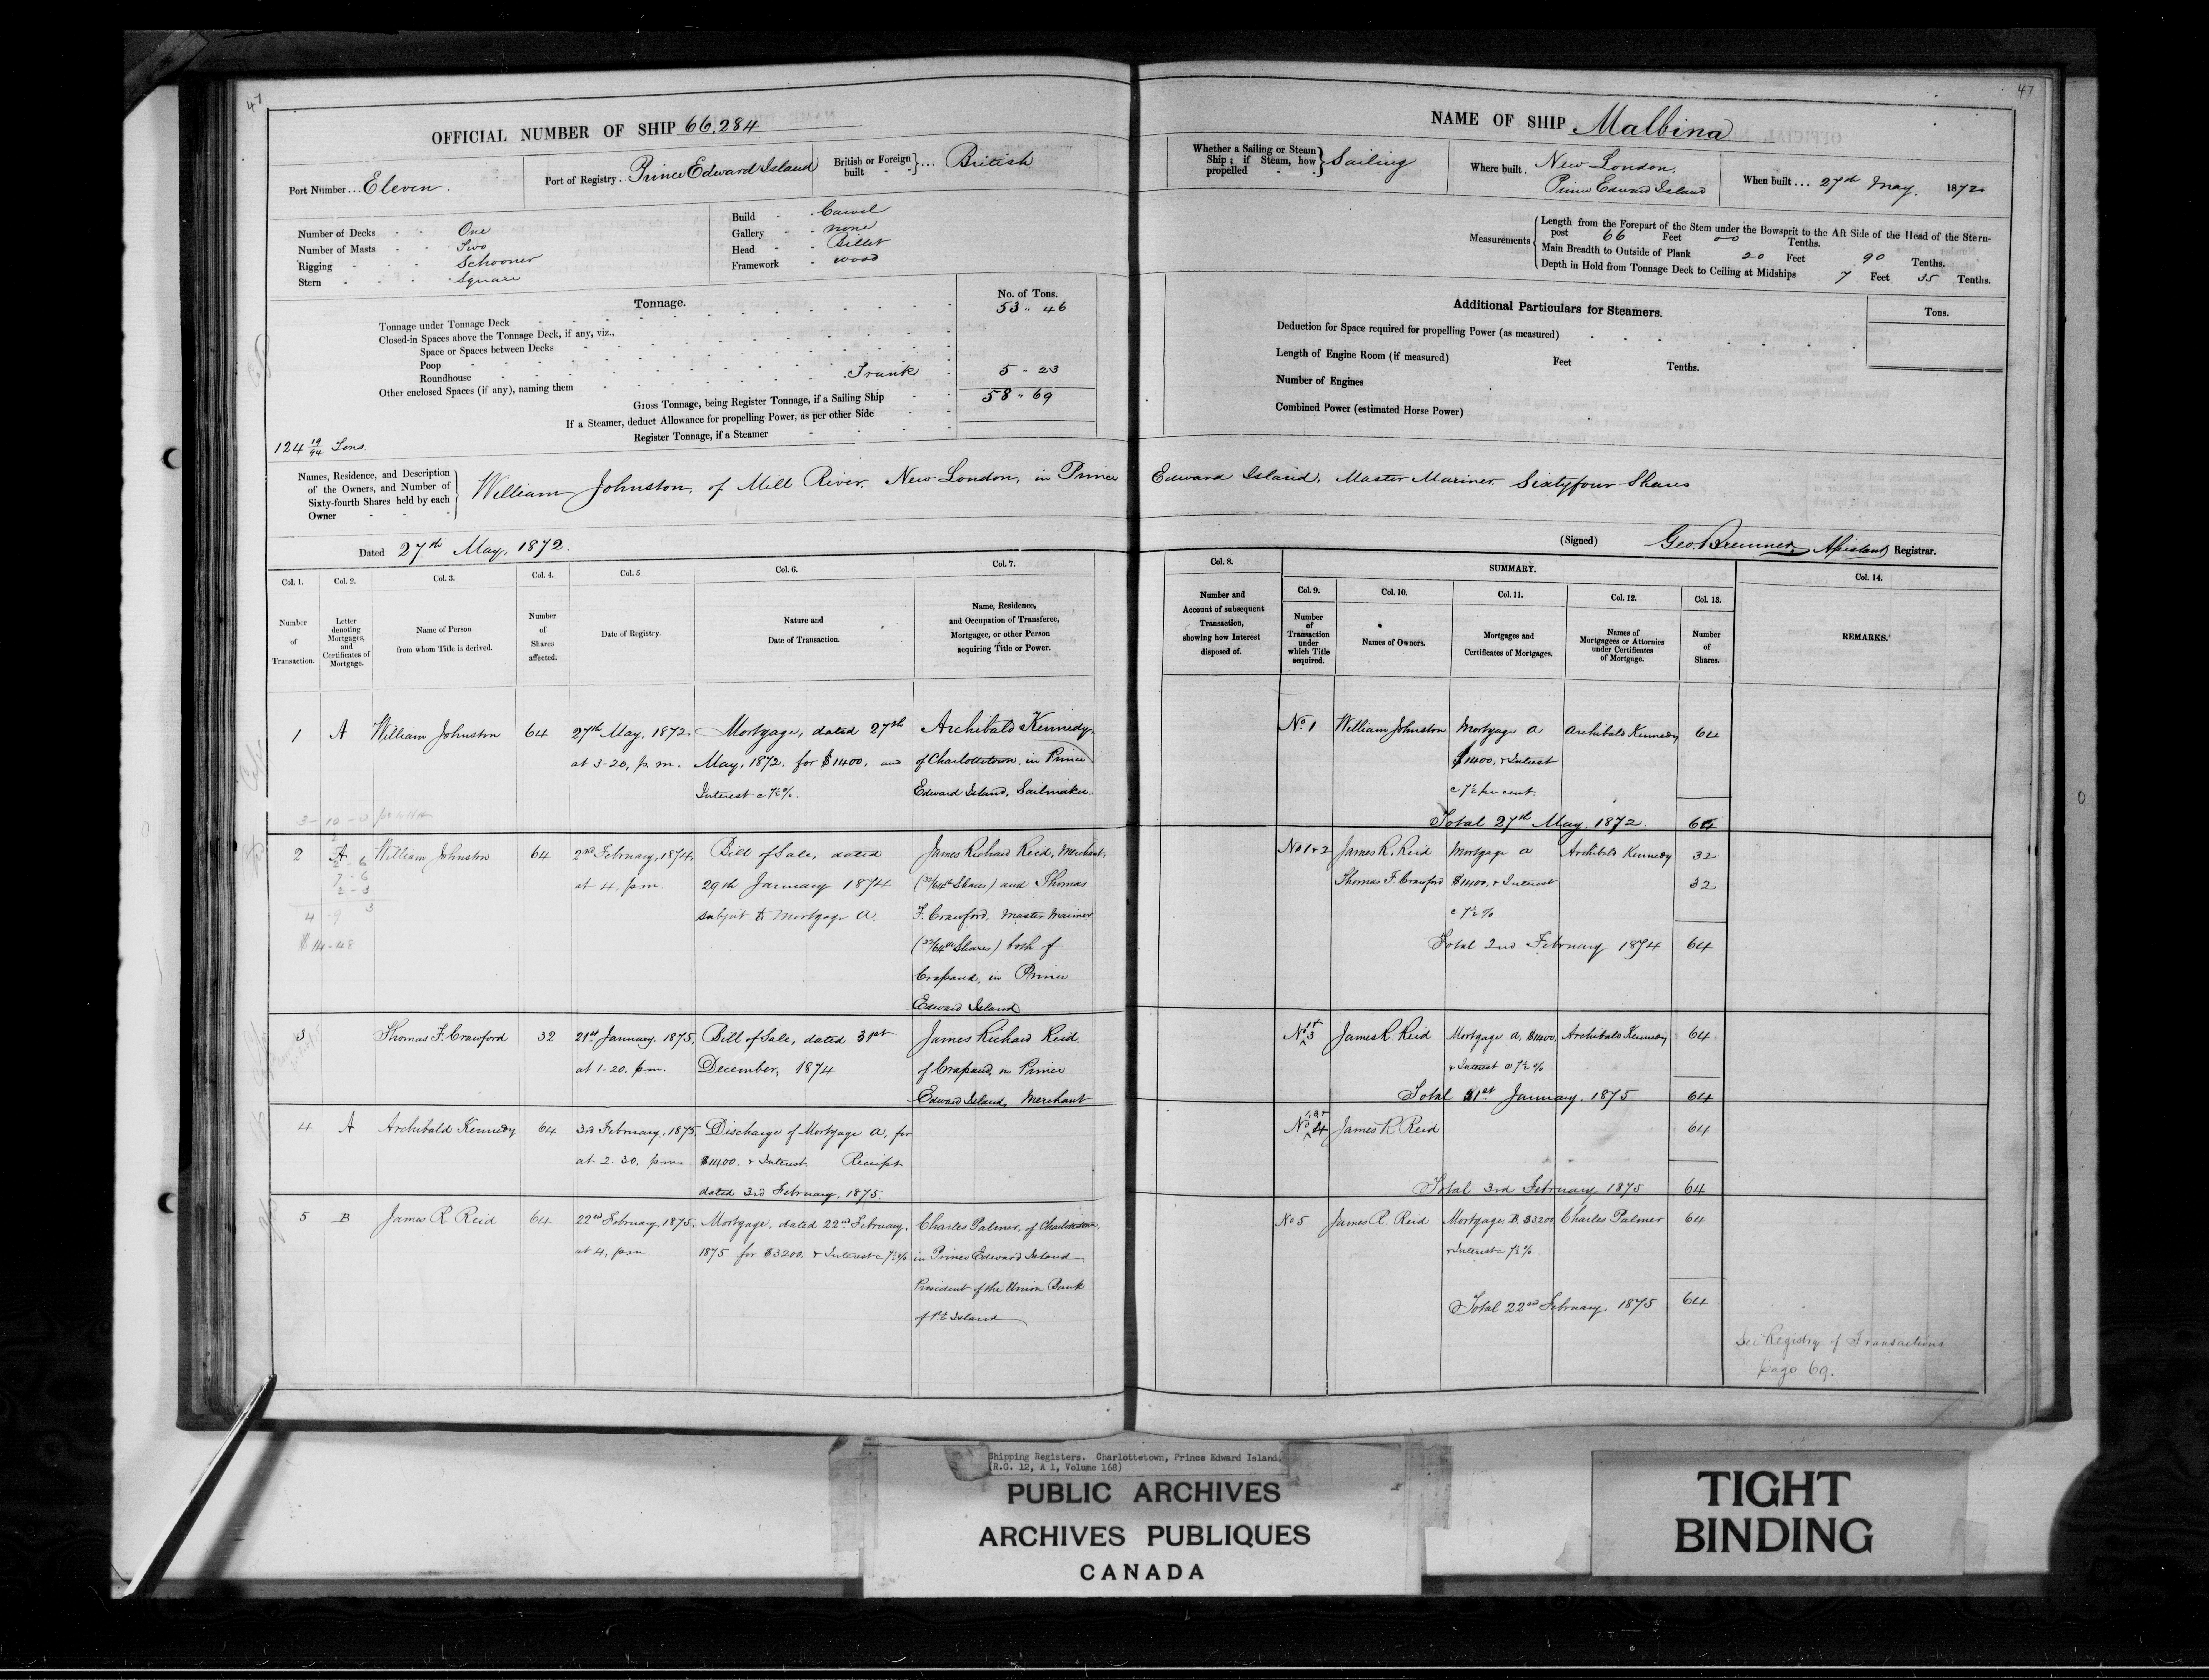 47
OFFICIAL NUMBER OF SHIP 66.284
Port Number... Eleven.
Port of Registry. Prince Edward Island
British or Foreign built }... British
Number of Decks One
Number of Masts Two
Rigging Schooner
Stern Square
Build Carvel
Gallery none
Head Billet
Framework wood
Tonnage. No. of Tons.
Tonnage under Tonnage Deck 53 .. 46
Closed-in Spaces above the Tonnage Deck, if any, viz.,
Space or Spaces between Decks
Poop
Roundhouse
Other enclosed Spaces (if any), naming them Trunk 5 .. 23
Gross Tonnage, being Register Tonnage, if a Sailing Ship 58 .. 69
If a Steamer, deduct Allowance for propelling Power, as per other Side
Register Tonnage, if a Steamer
124 19/94 Tons.
47
NAME OF SHIP Malbina
Whether a Sailing or Steam Ship; if Steam, how propelled } Sailing
Where built. New London, Prince Edward Island
When built... 27th May. 1872
Measurements { Length from the Forepart of the Stem under the Bowsprit to the Aft Side of the Head of the Stern-
post 66 Feet 00 Tenths.
Main Breadth to Outside of Plank 20 Feet 90 Tenths.
Depth in Hold from Tonnage Deck to Ceiling at Midships 7 Feet 35 Tenths.
Additional Particulars for Steamers. Tons.
Deduction for Space required for propelling Power (as measured)
Length of Engine Room (if measured) Feet Tenths.
Number of Engines
Combined Power (estimated Horse Power)
Names, Residence, and Description of the Owners, and Number of Sixty-fourth Shares held by each Owner } William Johnston, of Mill River, New London, in Prince Edward Island, Master Mariner Sixtyfour Shares
Dated 27th May, 1872.
(Signed) Geo. Bremner, Assistant Registrar.
Col. 1. Number of Transaction.
Col. 2. Letter denoting Mortgages, and Certificates of Mortgage.
Col. 3. Name of Person from whom Title is derived.
Col. 4. Number of Shares affected.
Col. 5 Date of Registry.
Col. 6. Nature and Date of Transaction.
Col. 7. Name, Residence, and Occupation of Transferee, Mortgagee, or other Person acquiring Title or Power.
Col. 8. Number and Account of subsequent Transaction, showing how Interest disposed of.
SUMMARY.
Col. 9. Number of Transaction under which Title acquired.
Col. 10. Names of Owners.
Col. 11. Mortgages and Certificates of Mortgages.
Col. 12. Names of Mortgagees or Attornies under Certificates of Mortgage.
Col. 13. Number of Shares.
Col. 14. REMARKS.
1 A William Johnston 64 27th May, 1872. Mortgage, dated 27th Archibald Kennedy,
at 3-20, p.m. May, 1872. for $1400, and of Charlottetown, in Prince
Interest @ 7½%. Edward Island, Sailmaker.
No 1 William Johnston Mortgage A Archibald Kennedy 64
$1400, & Interest
@ 7½ per cent.
Total 27th May, 1872. 64
3-10-0
2 A William Johnston 64 2nd February, 1874, Bill of Sale, dated James Richard Reid, Merchant,
at 4, p.m. 29th January 1874 (32/64th Shares) and Thomas
subject to Mortgage A. F. Crawford, Master Mariner
(32/64th Shares) both of
Crapaud, in Prince
Edward Island
2-6
7-6
2-3
4-9
$14-48
No 1&2 James R. Reid Mortgage A Archibald Kennedy 32
Thomas F. Crawford $1400, & Interest 32
@ 7½%
Total 2nd February 1874 64
3 Thomas F. Crawford 32 21st January, 1875, Bill of Sale, dated 31st James Richard Reid
at 1-20. p.m. December, 1874 of Crapaud, in Prince
Edward Island, Merchant
No 1& 3 James R. Reid Mortgage A, $1400, Archibald Kennedy 64
& Interest @ 7½%
Total 21st January, 1875 64
4 A Archibald Kennedy 64 3rd February, 1875, Discharge of Mortgage A, for
at 2.30, p.m. $1400. & Interest. Receipt
dated 3rd February, 1875.
No 4 James R Reid 64
Total 3rd February 1875 64
5 B James R. Reid 64 22nd February, 1875, Mortgage, dated 22nd February, Charles Palmer, of Charlottetown,
at 4, p.m. 1875 for $3200, & Interest @ 7½% in Prince Edward Island
President of the Union Bank
of P E Island
No 5 James R. Reid Mortgage, B, $3200, Charles Palmer 64
& Interest @ 7½%
Total 22nd February 1875 64
See Registry of Transactions
page 69.
Shipping Registers. Charlottetown, Prince Edward Island.
(R.G. 12, A 1, Volume 168)
PUBLIC ARCHIVES
ARCHIVES PUBLIQUES
CANADA
TIGHT
BINDING